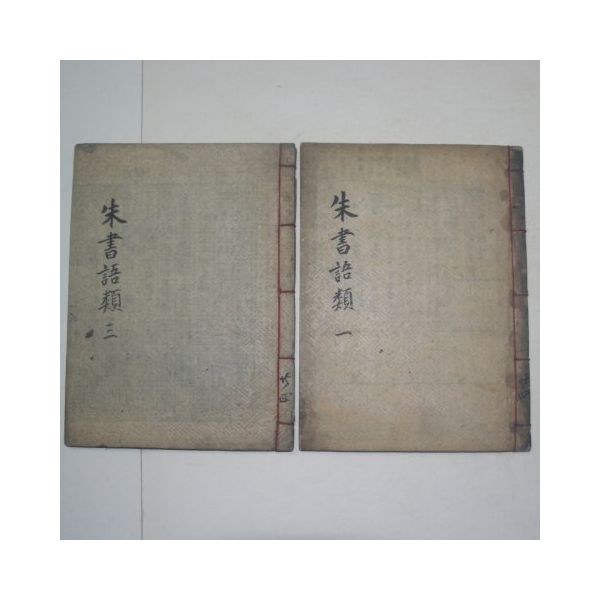 朱書語類 一
朱書語類 三
共四
共四